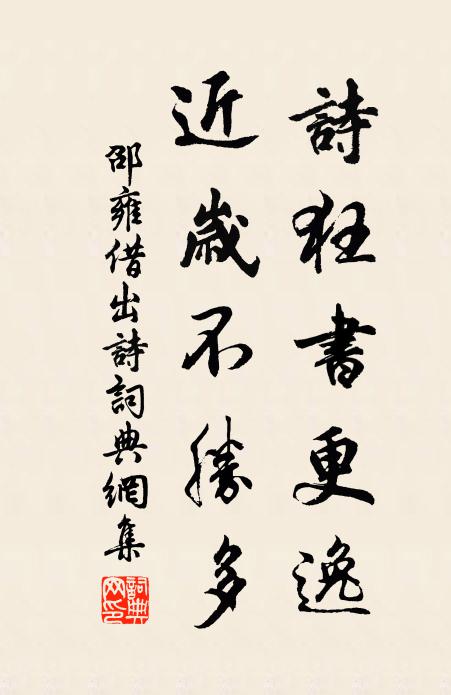 詩狂書更逸
近歳不勝多
邵雍借出詩詞典網集
詞典網印